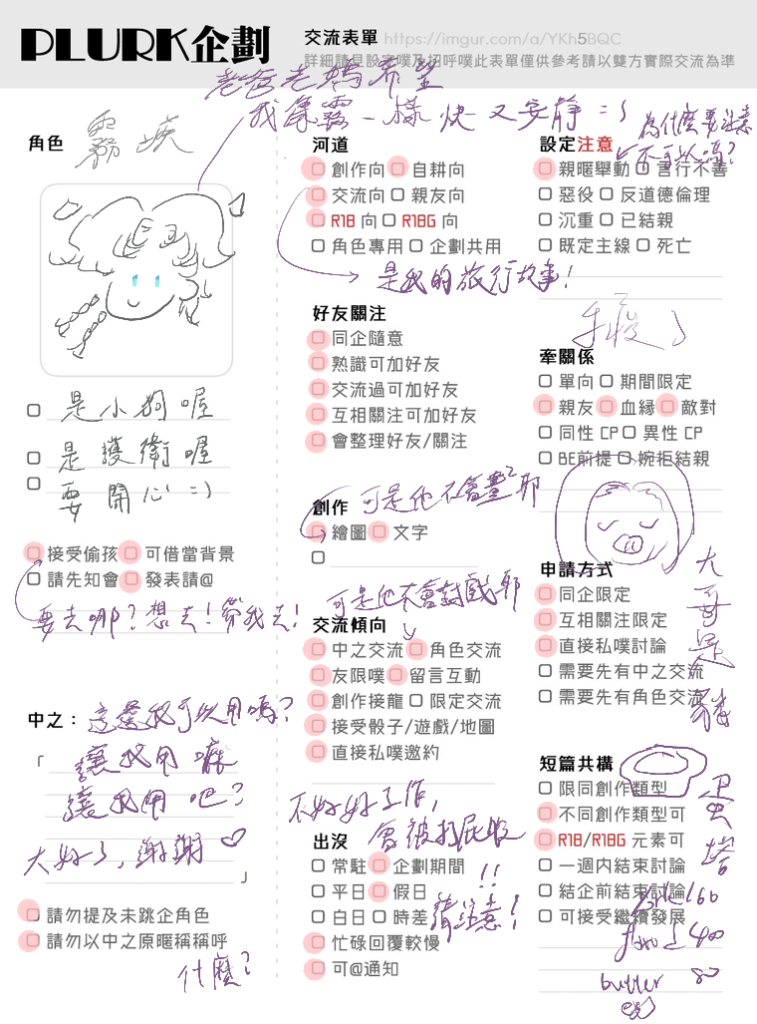 PLURK企劃
交流表單 https://imgur.com/a/YKh5BQC
詳細請見設定噗及招呼噗此表單僅供參考請以雙方實際交流為準
老爸老媽希望
我像霧一樣 快又安靜 =)
角色 霧
是小狗喔
是護衛喔
要開心 =)
接受偷孩 可借當背景
請先知會 發表請@
要去哪?想去!帶我去!
中之:這邊我可以用嗎?
「 讓我用嘛
讓我用吧?
大好了,謝謝♡
」
請勿提及未跳企角色
請勿以中之原暱稱稱呼
什麼?
河道
創作向 自耕向
交流向 親友向
R18 向 R18G 向
角色專用 企劃共用
是我的旅行故事!
好友關注
同企隨意
熟識可加好友
交流過可加好友
互相關注可加好友
會整理好友/關注
創作 可是他不會畫耶
繪圖 文字
可是他不會對戲耶
交流傾向
中之交流 角色交流
友限噗 留言互動
創作接龍 限定交流
接受骰子/遊戲/地圖
直接私噗邀約
不好好工作,
會被打屁股
!!
請注意!
出沒
常駐 企劃期間
平日 假日
白日 時差
忙碌回覆較慢
可@通知
為什麼要注意
不可以嗎?
設定注意
親暱舉動 言行不善
惡役 反道德倫理
沉重 已結親
既定主線 死亡
手痠了
牽關係
單向 期間限定
親友 血緣 敵對
同性 CP 異性 CP
BE前提 婉拒結親
申請方式
同企限定
互相關注限定
直接私噗討論
需要先有中之交流
需要先有角色交流
大哥是豬
短篇共構
限同創作類型
不同創作類型可
R18/R18G 元素可
一週內結束討論
結企前結束討論
可接受繼續發展
蛋塔
160
400
butter 80